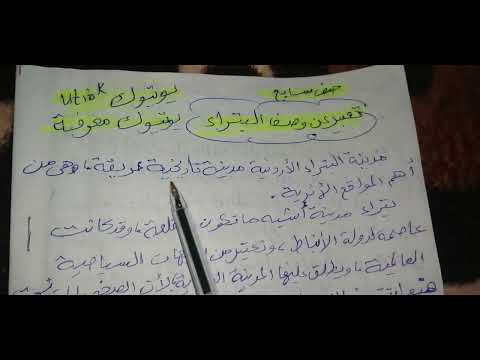 صف سابع
يوتيوك Utiok
تعبير عن وصف البتراء
يوتيوك معرفية
مدينة البتراء الأردنية مدينة تاريخية عريقة، وهي من
أهم المواقع الأثرية.
بتراء مدينة أشبه ما تكون، وقد كانت
عاصمة لدولة الأنباط، وتعتبر من السياحية
العالمية، ويطلق عليها المدينة لأن الصخور